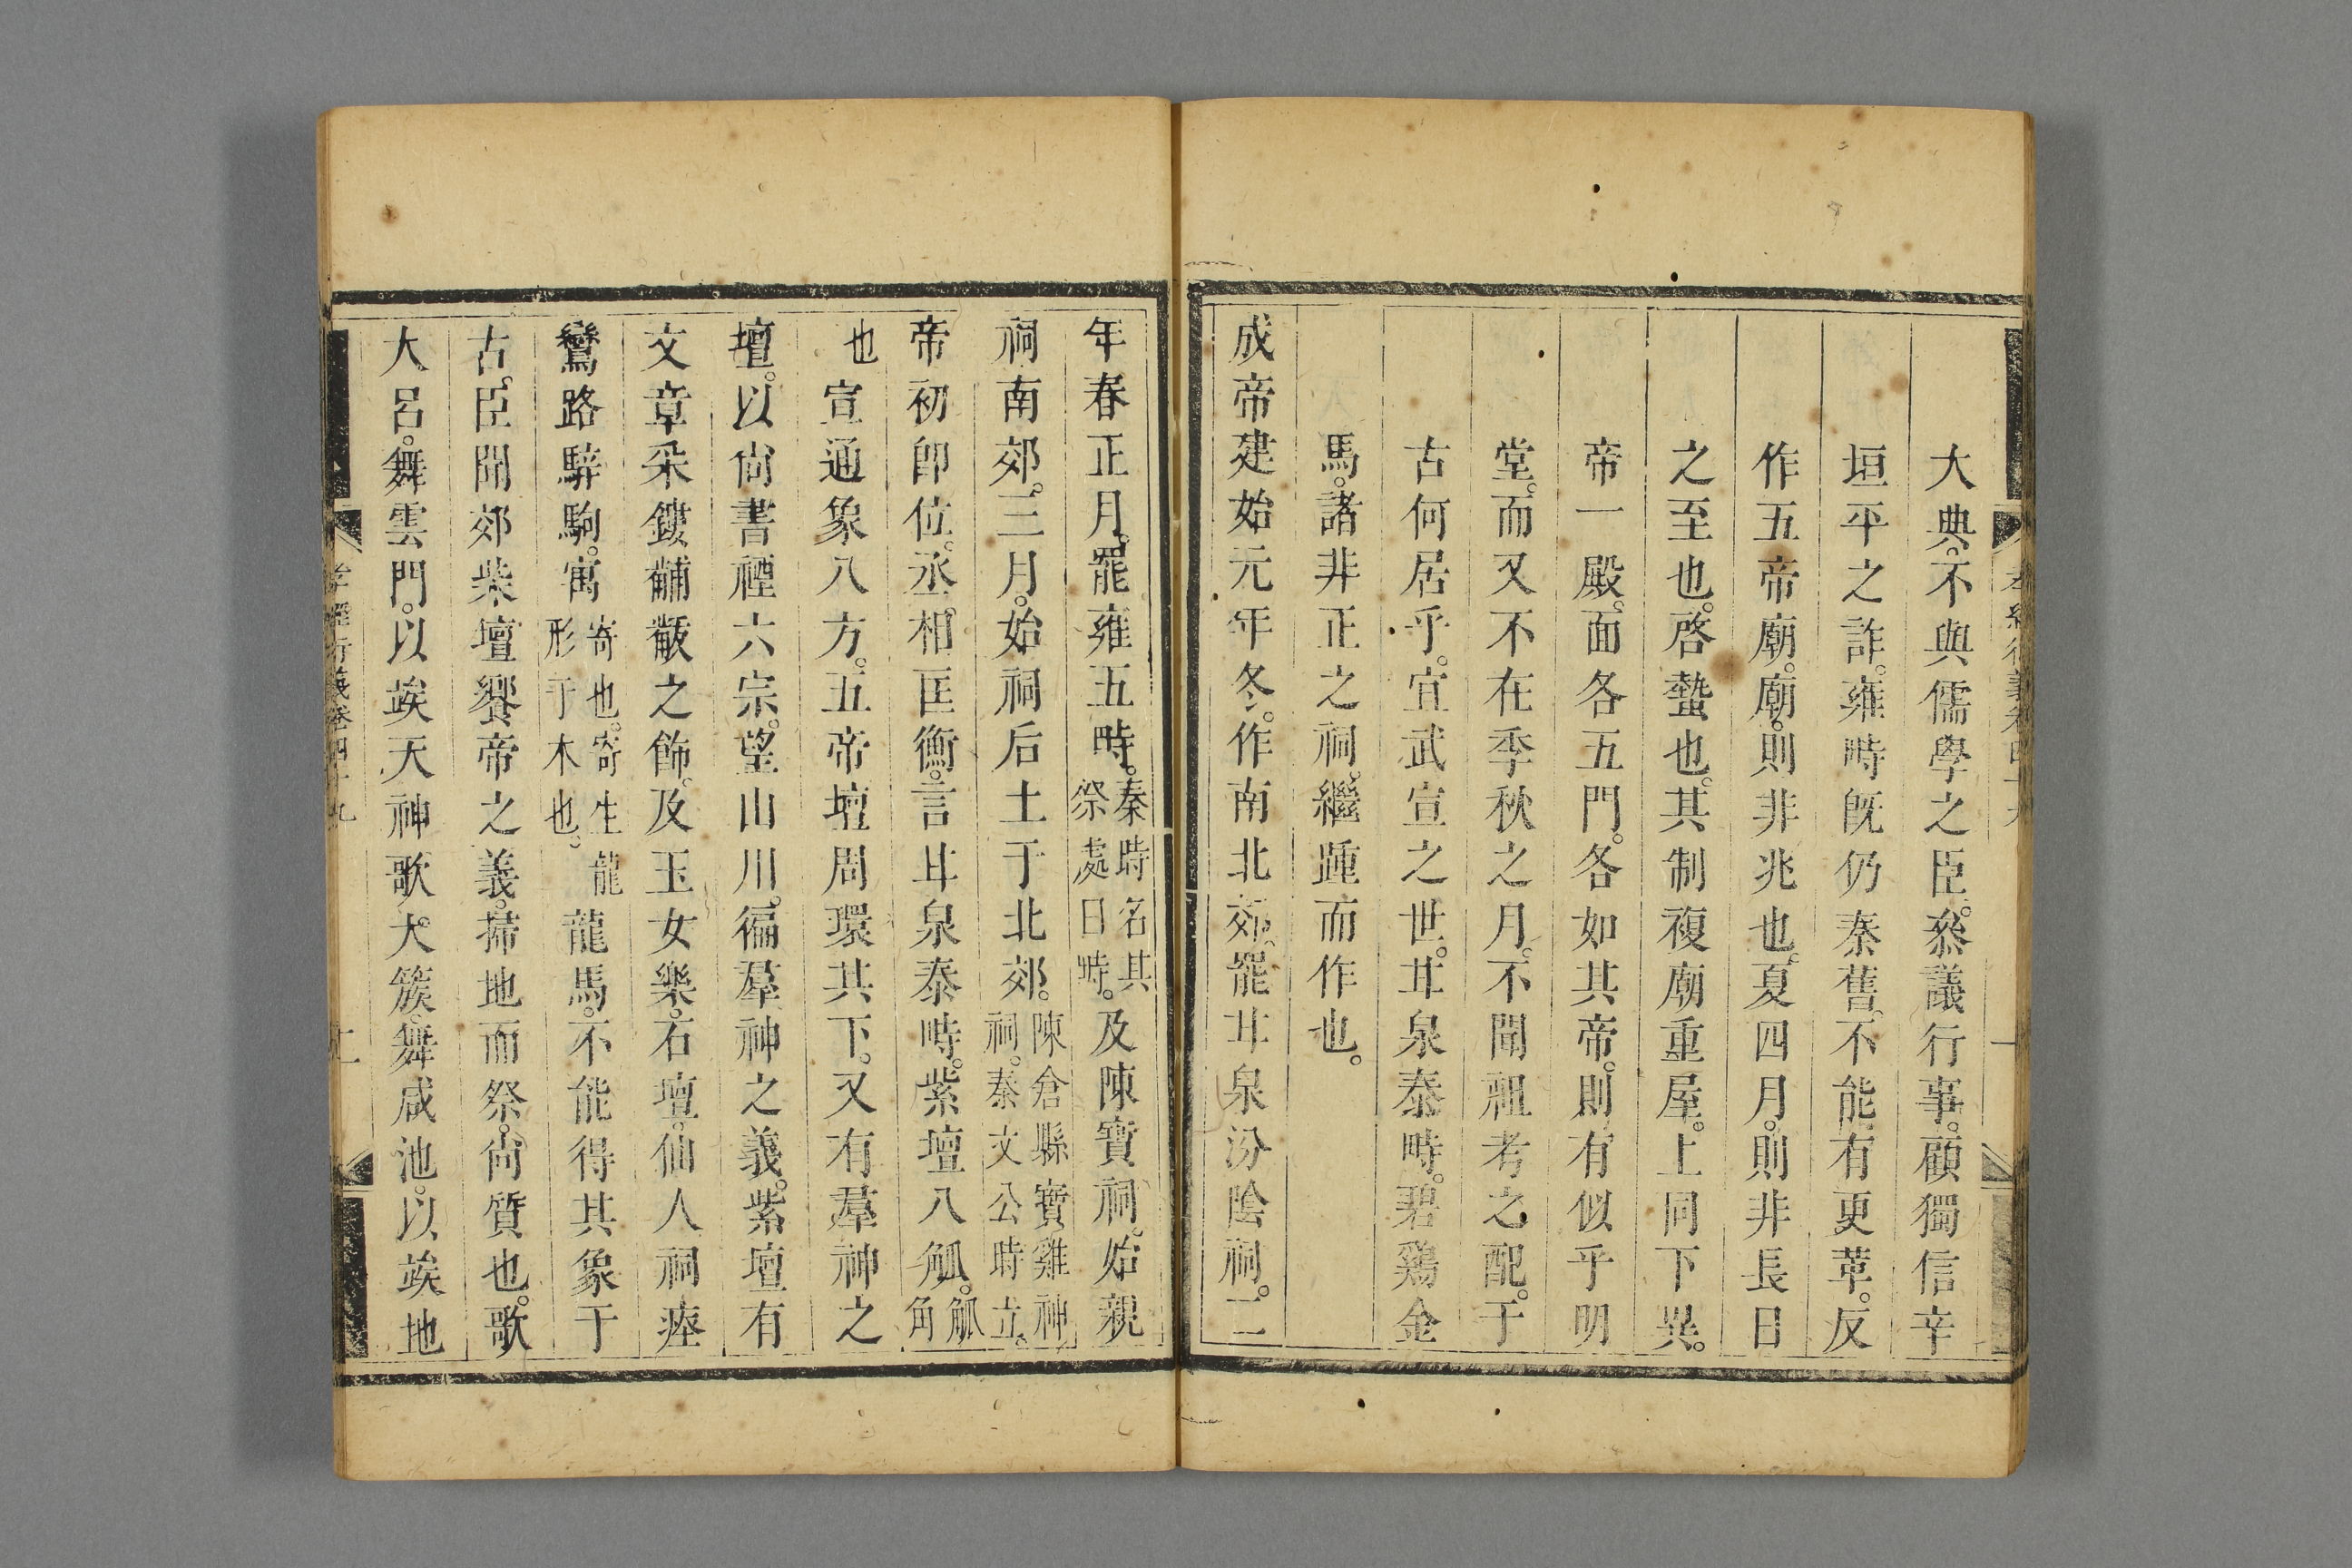 大典。不與儒學之臣。叅議行事。顧獨信辛
垣平之詐。雍畤旣仍秦舊。不能有更革。反
作五帝廟。廟則非兆也。夏四月。則非長日
之至也。啓蟄也。其制複廟重屋。上同下異。
帝一殿。面各五門。各如其帝。則有似乎明
堂。而又不在季秋之月。不聞祖考之配。于
古何居乎。宣武宣之世。甘泉泰畤。碧鷄金
馬。諸非正之祠。繼踵而作也。
成帝建始元年冬。作南北郊。罷甘泉汾陰祠。二
年春正月。罷雍五畤。秦時名其祭處曰畤。及陳寶祠。始親
祠南郊。三月。始祠后土于北郊。陳倉縣寶雞神祠。秦文公時立。
帝初卽位。丞相匡衡。言甘泉泰畤。紫壇八觚。觚角
也宣通象八方。五帝壇周環其下。又有羣神之
壇。以尙書禋六宗。望山川。徧羣神之義。紫壇有
文章采鏤黼黻之飾。及玉女樂。石壇。仙人祠瘞
鸞路騂駒。寓寄也。寄生龍形于木也。龍馬。不能得其象于
古。臣聞郊柴壇饗帝之義。掃地而祭。尙質也。歌
大呂。舞雲門。以竢天神歌大簇。舞咸池。以竢地
孝經衍義卷四十九 二